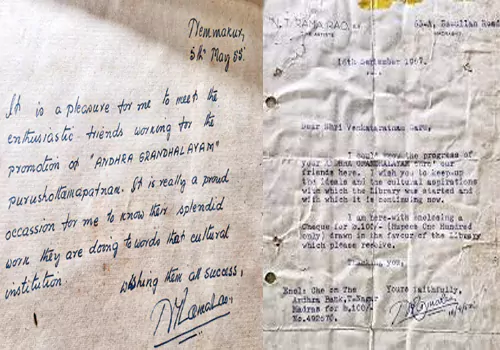 Nemmakur,
5th May 53.
It is a pleasure for me to meet the
enthusiastic friends working for the
promotion of "ANDHRA GRANDHALAYAM"
purushottamapatnam. It is really a proud
occassion for me to know their splendid
work they are doing towords that cultural
institution.
wishing them all success,
N. T. RAMA RAO, B.A.
CINE ARTISTE
Bazullah Road
MADRAS-17
16th September 1967.
Dear Shri Venkataratnam Garu,
I could the progress of
your ANDHRA GRANDHALAYAM our
friends here. I wish you to keep-up
the ideals and the cultural aspirations
with which the Library was started and
with which it is continuing now.
I am here-with enclosing a
Cheque for Rs.100/- (Rupees One Hundred
only) drawn in the favour of the library
which please receive.
Thanking you,
Encl: Che on The
Andhra Bank,T.Nagar
Madras for Rs.100/-
No.492670.
Yours faithfully,